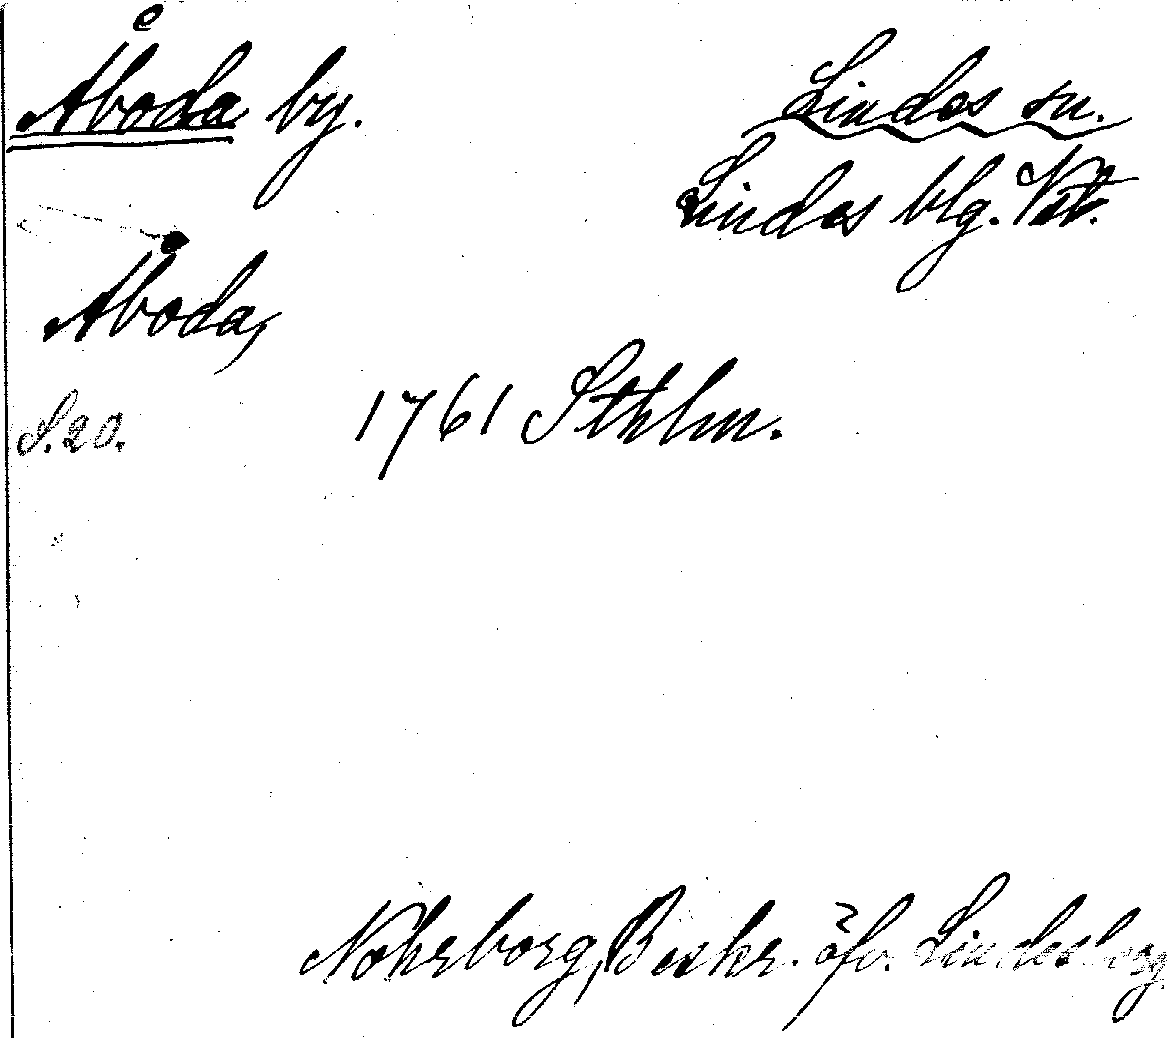 Åboda by.
Lindes sn.
Lindes blg. Vstm.
Åboda,
S. 20.
1761 Sthlm.
Nohrborg, Beskr. öfv. Lindesborg